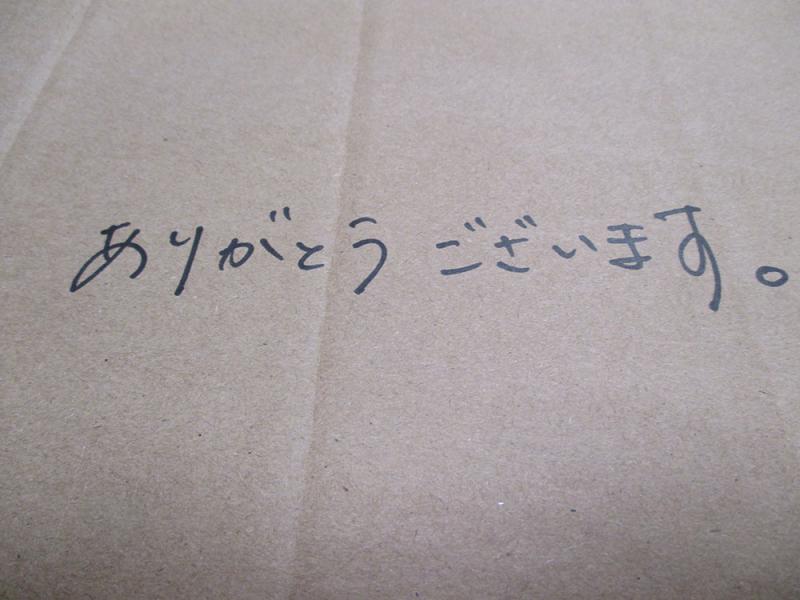 ありがとう ございます。